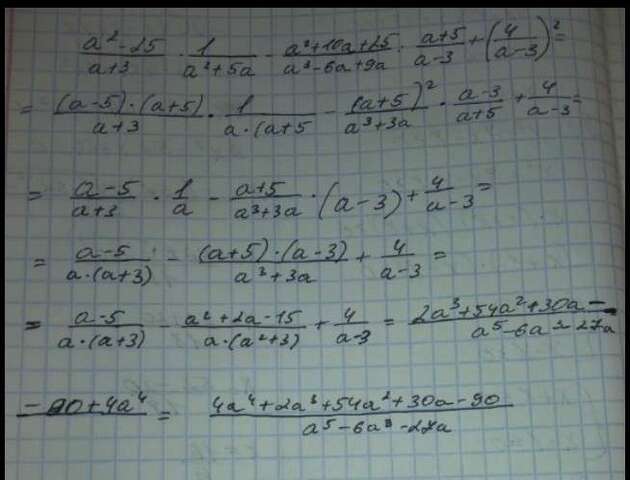 (a²-25)/(a+3) · 1/(a²+5a) - (a²+10a+25)/(a³-6a+9a) : (a+5)/(a-3) + (4/(a-3))² =
= ((a-5)·(a+5))/(a+3) · 1/(a·(a+5 - (a+5)²/(a³+3a) · (a-3)/(a+5) + 4/(a-3) =
= (a-5)/(a+3) · 1/a - (a+5)/(a³+3a) · (a-3) + 4/(a-3) =
= (a-5)/(a·(a+3)) - ((a+5)·(a-3))/(a³+3a) + 4/(a-3) =
= (a-5)/(a·(a+3)) - (a²+2a-15)/(a·(a²+3)) + 4/(a-3) = (2a³+54a²+30a-)/(a⁵-6a³-27a)
(-90+4a⁴)/ = (4a⁴+2a³+54a²+30a-90)/(a⁵-6a³-27a)